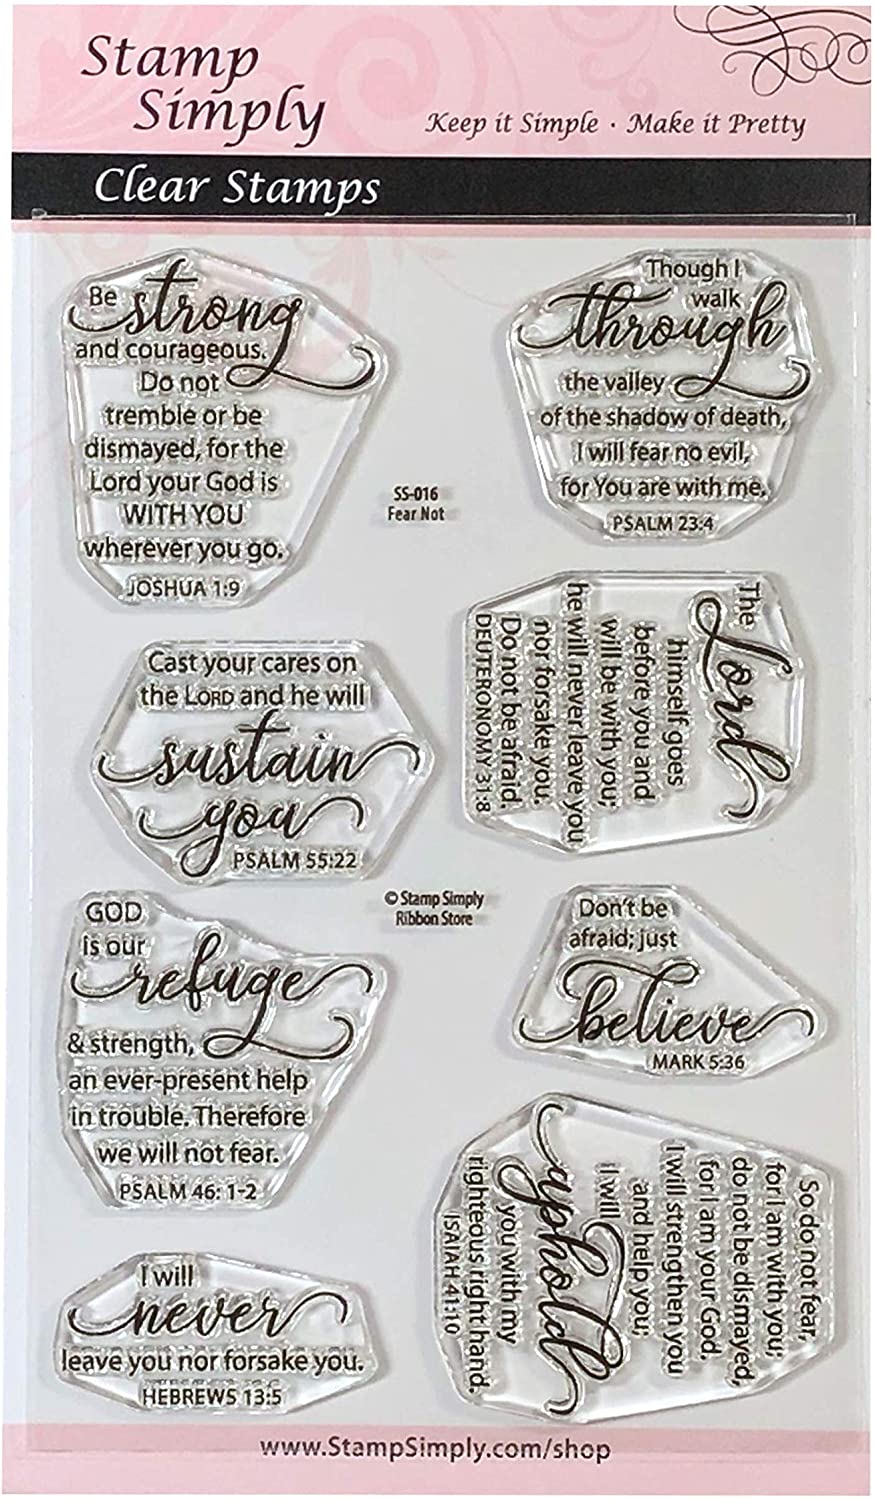 Stamp
Simply
Keep it Simple · Make it Pretty
Clear Stamps
Be strong
and courageous.
Do not
tremble or be
dismayed, for the
Lord your God is
WITH YOU
wherever you go.
JOSHUA 1:9
Though I
walk
through
the valley
of the shadow of death,
I will fear no evil,
for You are with me.
PSALM 23:4
SS-016
Fear Not
Cast your cares on
the LORD and he will
sustain
you
PSALM 55:22
The
Lord
himself goes
before you and
will be with you;
he will never leave you
nor forsake you.
Do not be afraid.
DEUTERONOMY 31:8
© Stamp Simply
Ribbon Store
GOD
is our
refuge
& strength,
an ever-present help
in trouble. Therefore
we will not fear.
PSALM 46: 1-2
Don't be
afraid; just
believe
MARK 5:36
So do not fear,
for I am with you;
do not be dismayed,
for I am your God.
I will strengthen you
and help you;
I will
uphold
you with my
righteous right hand.
ISAIAH 41:10
I will
never
leave you nor forsake you.
HEBREWS 13:5
www.StampSimply.com/shop